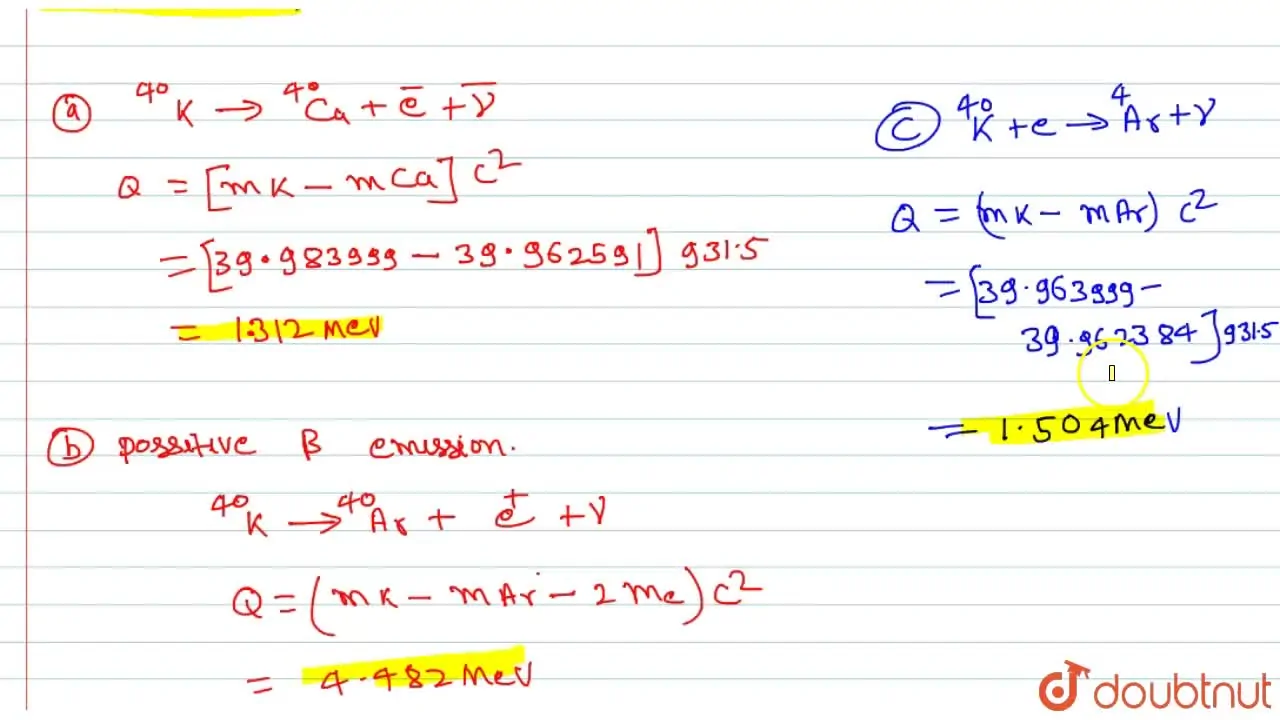 (a) ⁴⁰K → ⁴⁰Ca + e̅ + ν̅
Q = [mK – mCa] c²
= [39.983999 – 39.962591] 931.5
= 1.312 meV
(b) possitive β emission.
⁴⁰K → ⁴⁰Ar + e⁺ + ν
Q = (mK – mAr – 2me) c²
= 4.482 MeV
(C) ⁴⁰K + e → ⁴Ar + ν
Q = (mK – mAr) c²
= [39.963999 –
39.962384] 931.5
= 1.504 MeV
doubtnut